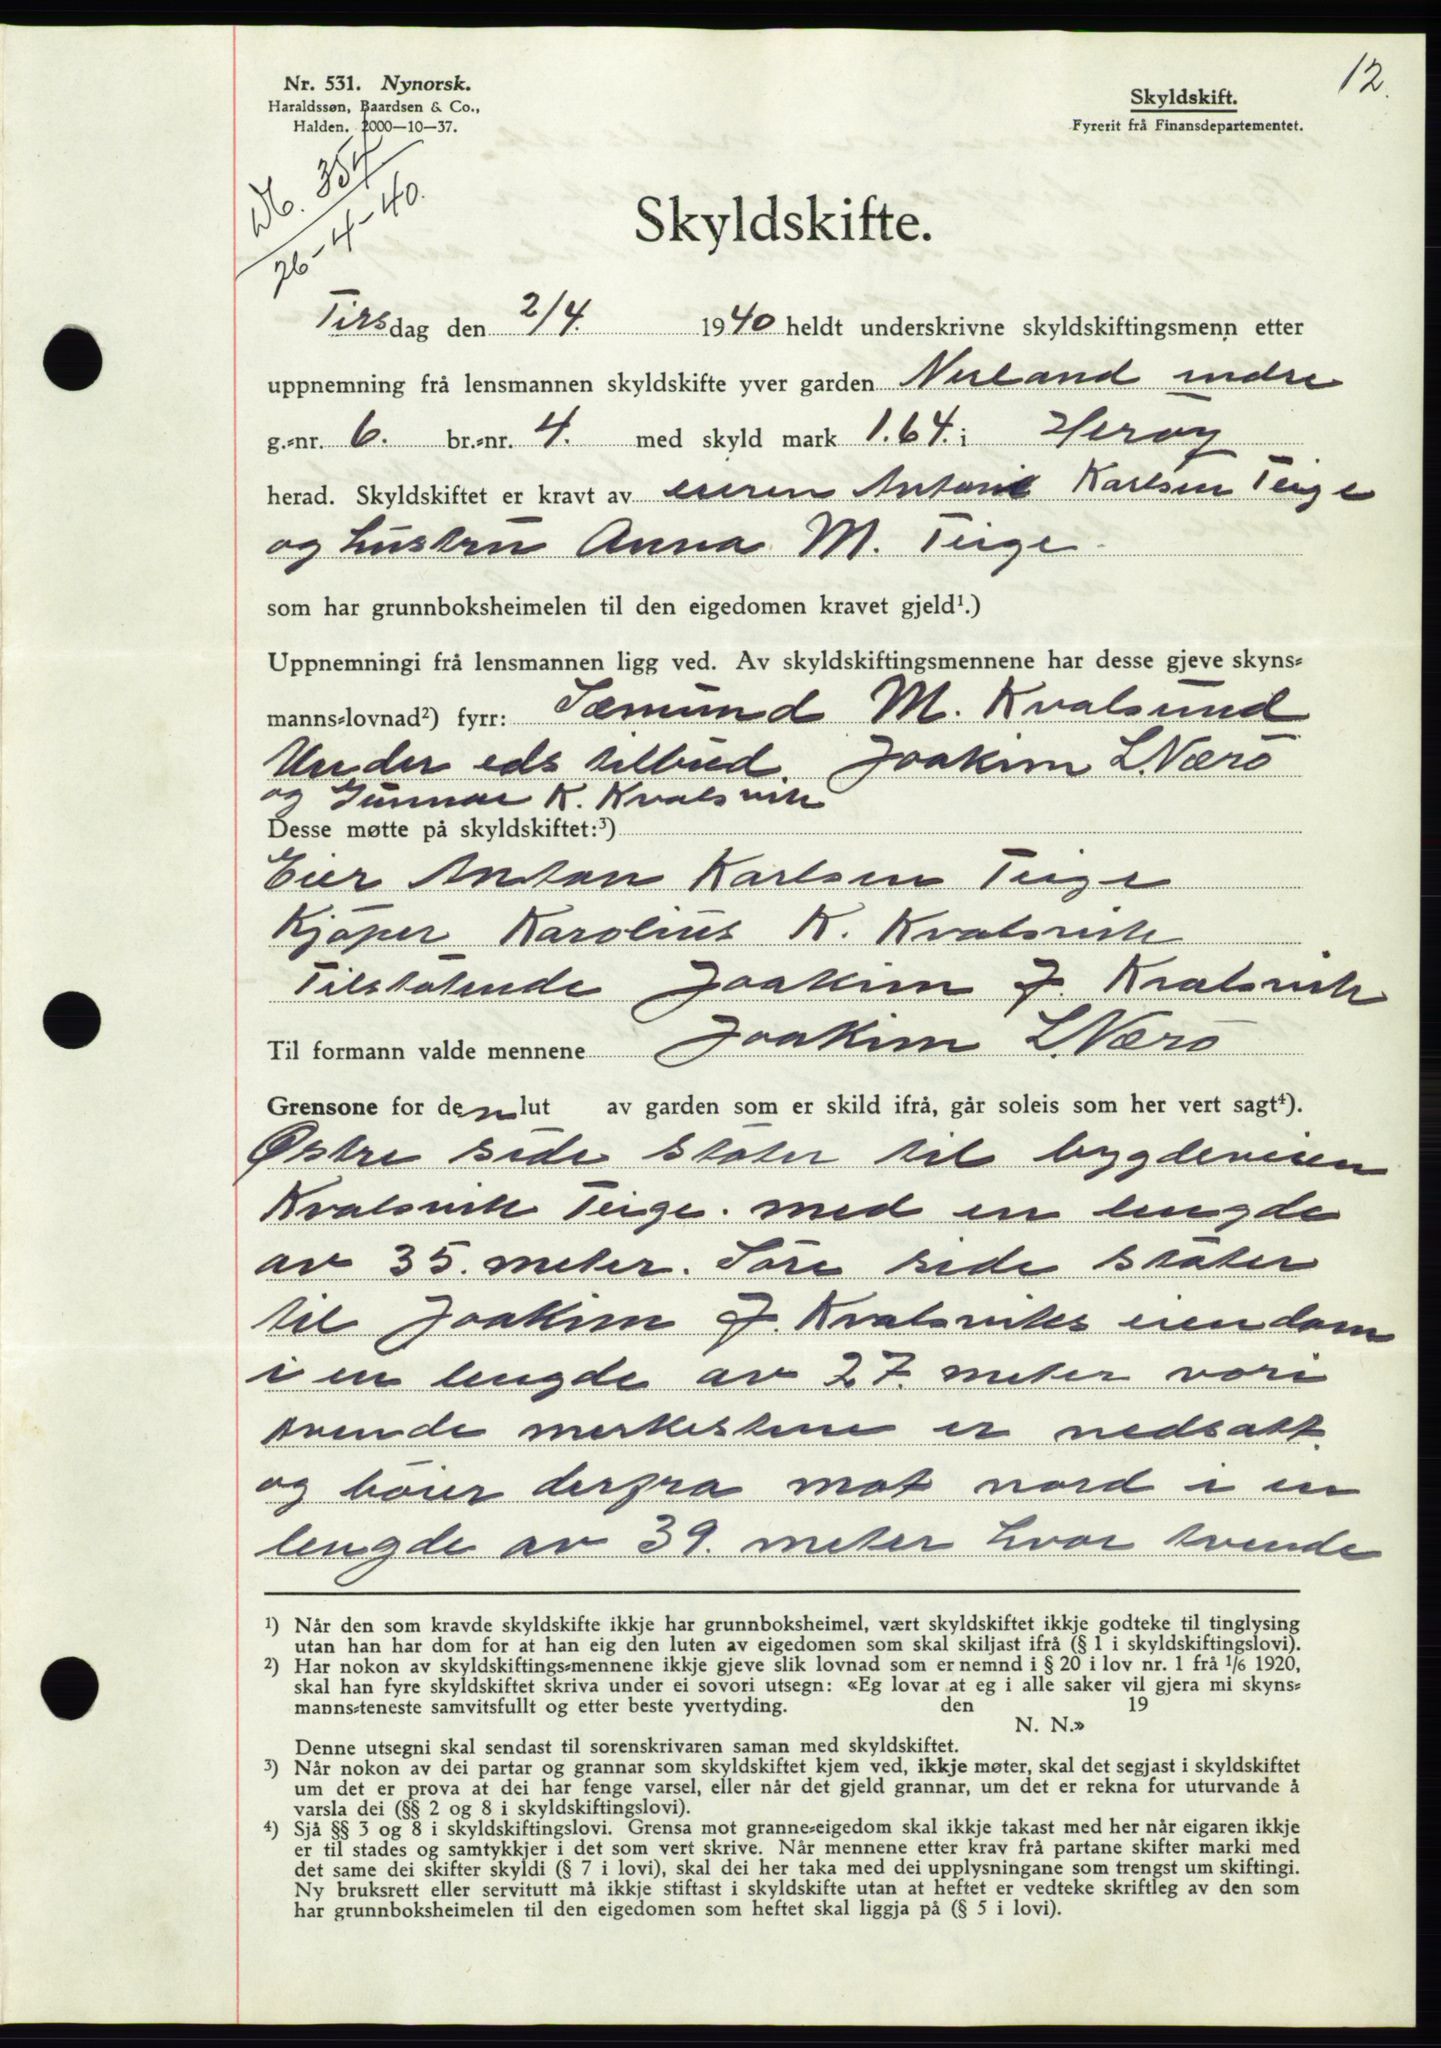 12.
Nr. 531. Nynorsk.
Haraldssøn, Baardsen & Co.,
Halden. 2000—10—37.
Skyldskift.
Fyrerit frå Finansdepartementet.
Nb. 354
26-4-40.
Skyldskifte.
Tirsdag den 2/4. 1940 heldt underskrivne skyldskiftingsmenn etter
uppnemning frå lensmannen skyldskifte yver garden Nerland indre
g.-nr. 6. br.-nr. 4. med skyld mark 1.64. i Herøy
herad. Skyldskiftet er kravt av eieren Anton Karlsen Teige
og hustru Anna M. Teige.
som har grunnboksheimelen til den eigedomen kravet gjeld¹.)
Uppnemningi frå lensmannen ligg ved. Av skyldskiftingsmennene har desse gjeve skyns-
manns-lovnad²) fyrr: Sæmund M. Kvalsund
Under eds tilbud. Joakim L. Nærö
og Gunnar K. Kvalsvik
Desse møtte på skyldskiftet:³)
Eier Anton Karlsen Teige
Kjöper Karolius K. Kvalsvik
Tilstötende Joakim J. Kvalsvik
Til formann valde mennene Joakim L. Nærö
Grensone for den lut av garden som er skild ifrå, går soleis som her vert sagt⁴).
Østre side stöter til bygdeveien
Kvalsvik Teige. med en lengde
av 35. meter. Söre side stöter
til Joakim J. Kvalsviks eiendom
i en lengde av 27. meter vori
tvende merkestene er nedsatt.
og böier derfra mot nord i en
lengde av 39. meter hvor tvende
¹) Når den som kravde skyldskifte ikkje har grunnboksheimel, vært skyldskiftet ikkje godteke til tinglysing
utan han har dom for at han eig den luten av eigedomen som skal skiljast ifrå (§ 1 i skyldskiftingslovi).
²) Har nokon av skyldskiftings-mennene ikkje gjeve slik lovnad som er nemnd i § 20 i lov nr. 1 frå 1/6 1920,
skal han fyre skyldskiftet skriva under ei sovori utsegn: «Eg lovar at eg i alle saker vil gjera mi skyns-
manns-teneste samvitsfullt og etter beste yvertyding. den 19
N. N.»
Denne utsegni skal sendast til sorenskrivaren saman med skyldskiftet.
³) Når nokon av dei partar og grannar som skyldskiftet kjem ved, ikkje møter, skal det segjast i skyldskiftet
um det er prova at dei har fenge varsel, eller når det gjeld grannar, um det er rekna for uturvande å
varsla dei (§§ 2 og 8 i skyldskiftingslovi).
⁴) Sjå §§ 3 og 8 i skyldskiftingslovi. Grensa mot granne-eigedom skal ikkje takast med her når eigaren ikkje
er til stades og samtykkjer i det som vert skrive. Når mennene etter krav frå partane skifter marki med
det same dei skifter skyldi (§ 7 i lovi), skal dei her taka med dei upplysningane som trengst um skiftingi.
Ny bruksrett eller servitutt må ikkje stiftast i skyldskifte utan at heftet er vedteke skriftleg av den som
har grunnboksheimelen til den eigedomen som heftet skal liggja på (§ 5 i lovi).